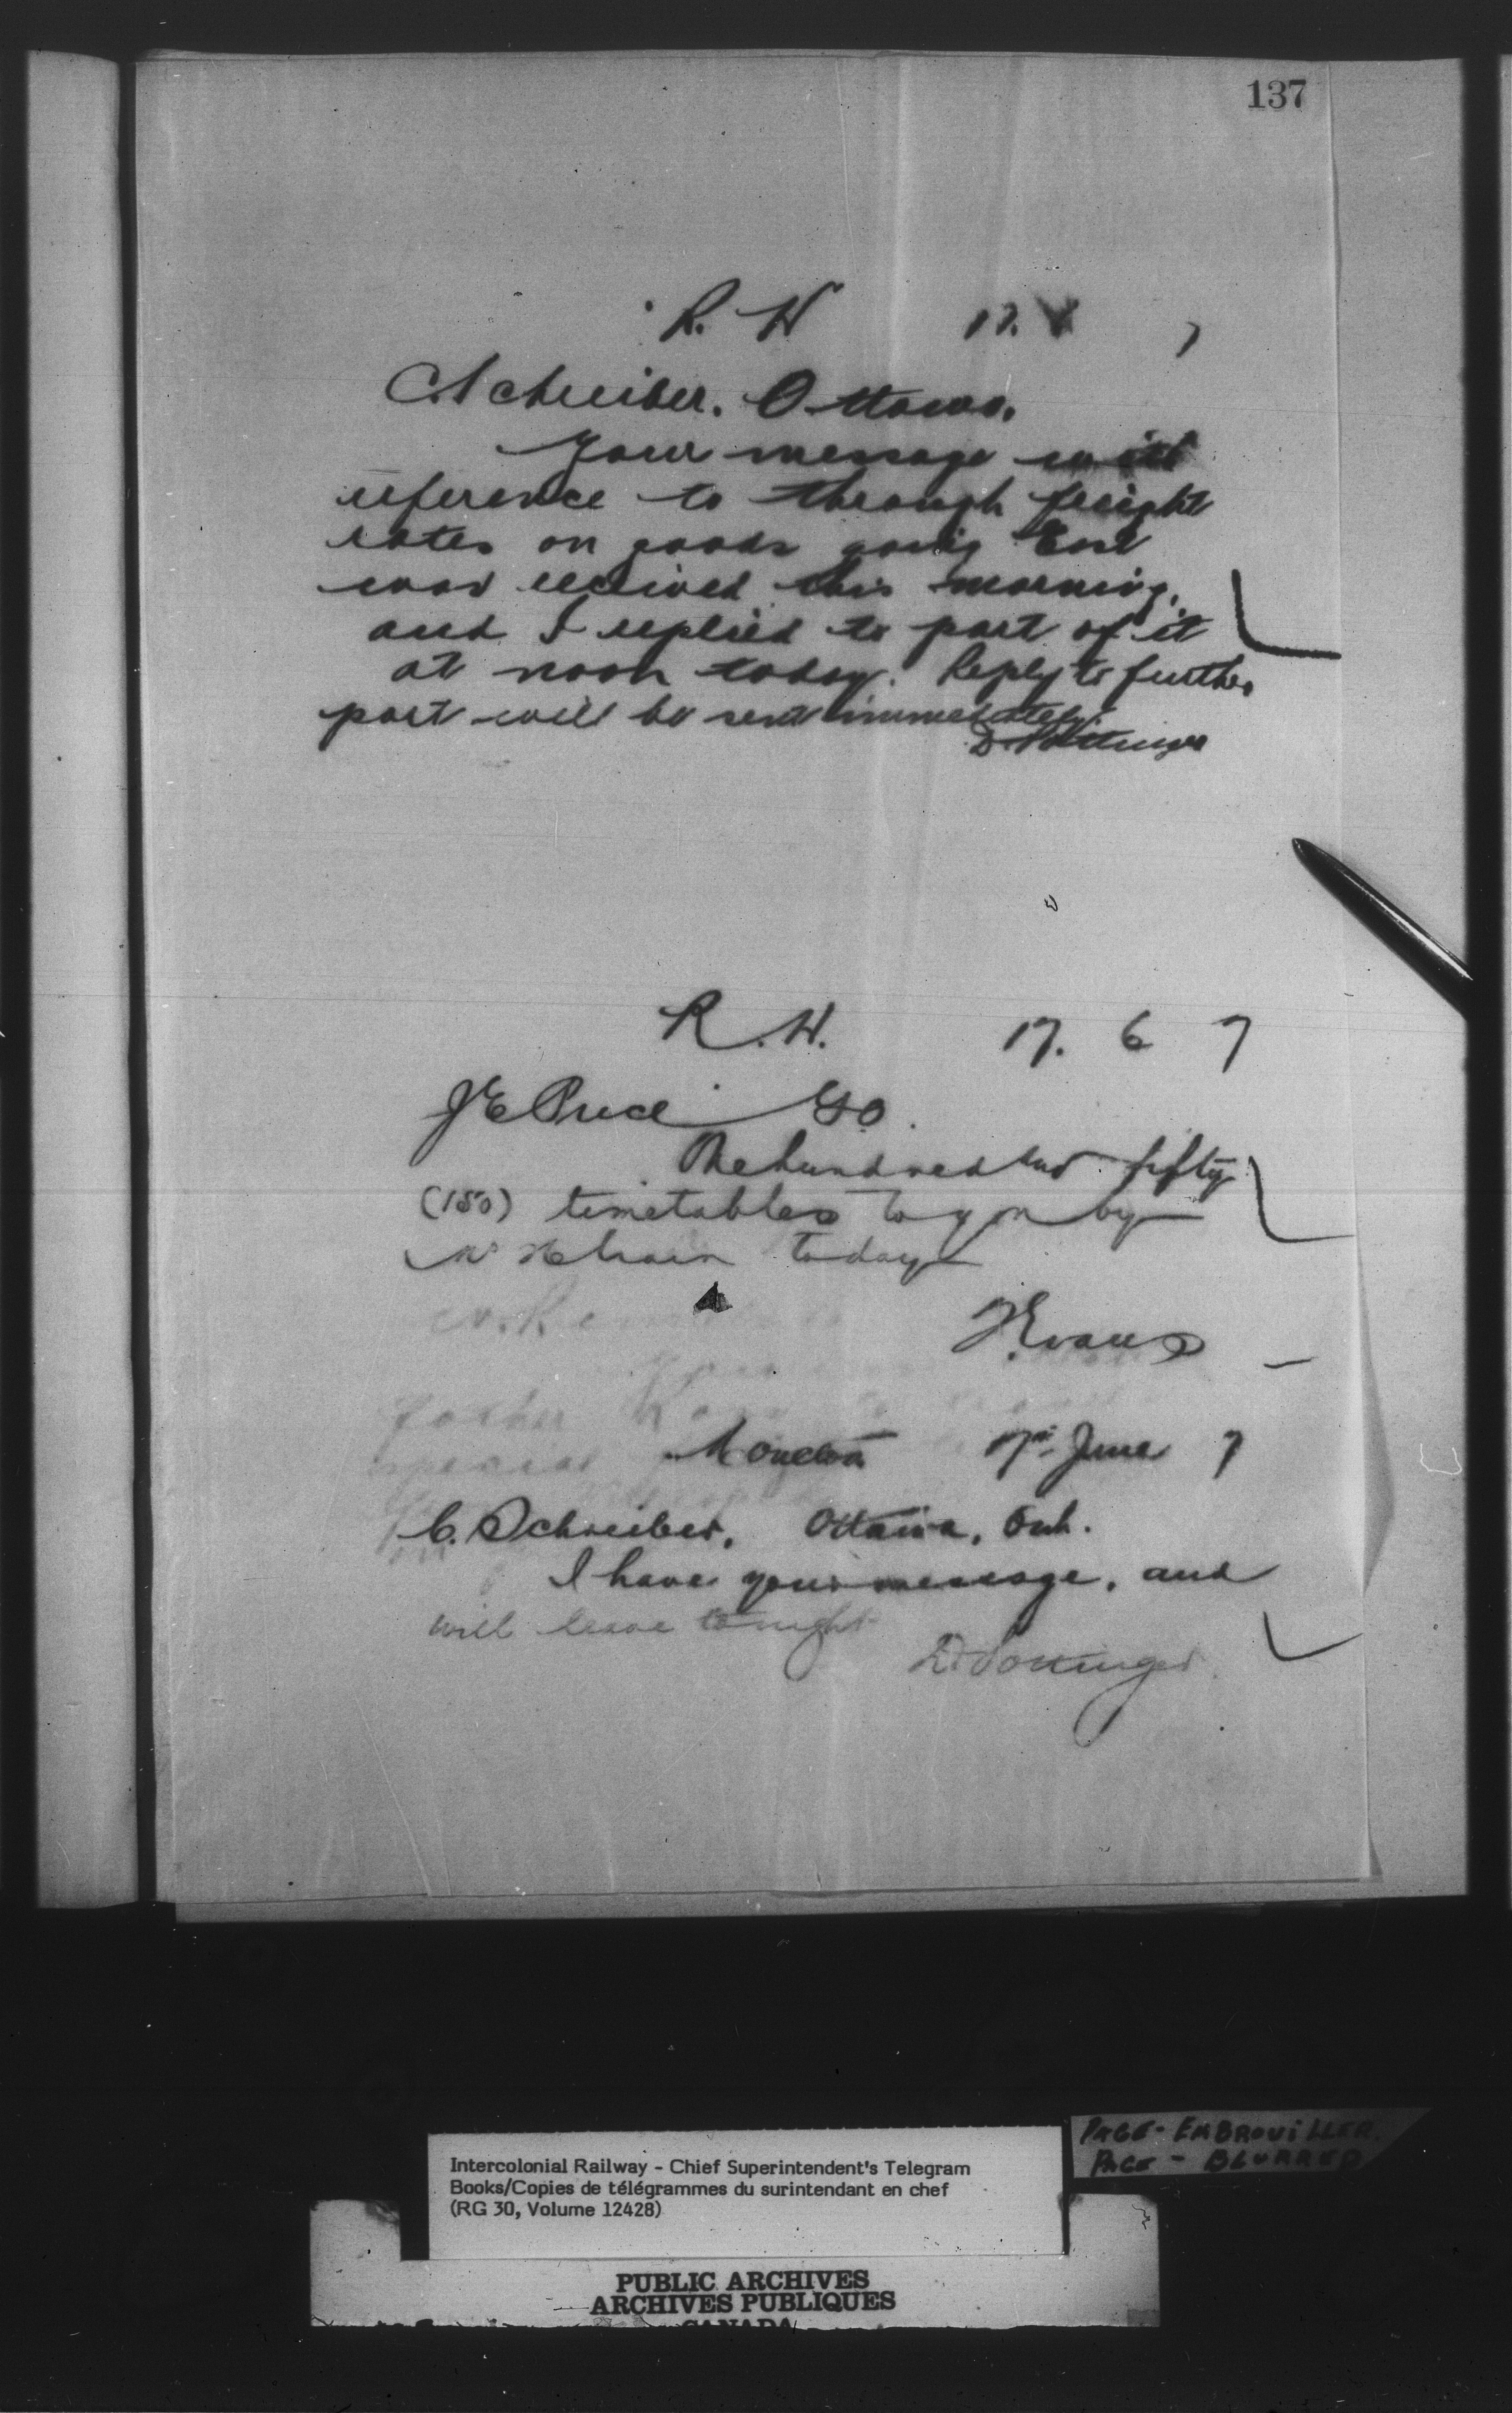 137
R. W 17. 6 7
C. Schreiber. Ottawa.
Your message with
reference to through freight
rates on goods going East
was received this morning,
and I replied to part of it
at noon today. Reply to further
part will be sent immediately.
D. Pottinger
R. W. 17. 6 7
J E Price
One hundred and fifty
(150) timetables to you by
train today
T. Evans
Moncton 17th June 7
C. Schreiber, Ottawa, Ont.
I have your message, and
will leave tonight
D. Pottinger
PAGE - EMBROUILLER.
PAGE - BLURRED
Intercolonial Railway - Chief Superintendent's Telegram
Books/Copies de télégrammes du surintendant en chef
(RG 30, Volume 12428)
PUBLIC ARCHIVES
ARCHIVES PUBLIQUES
CANADA